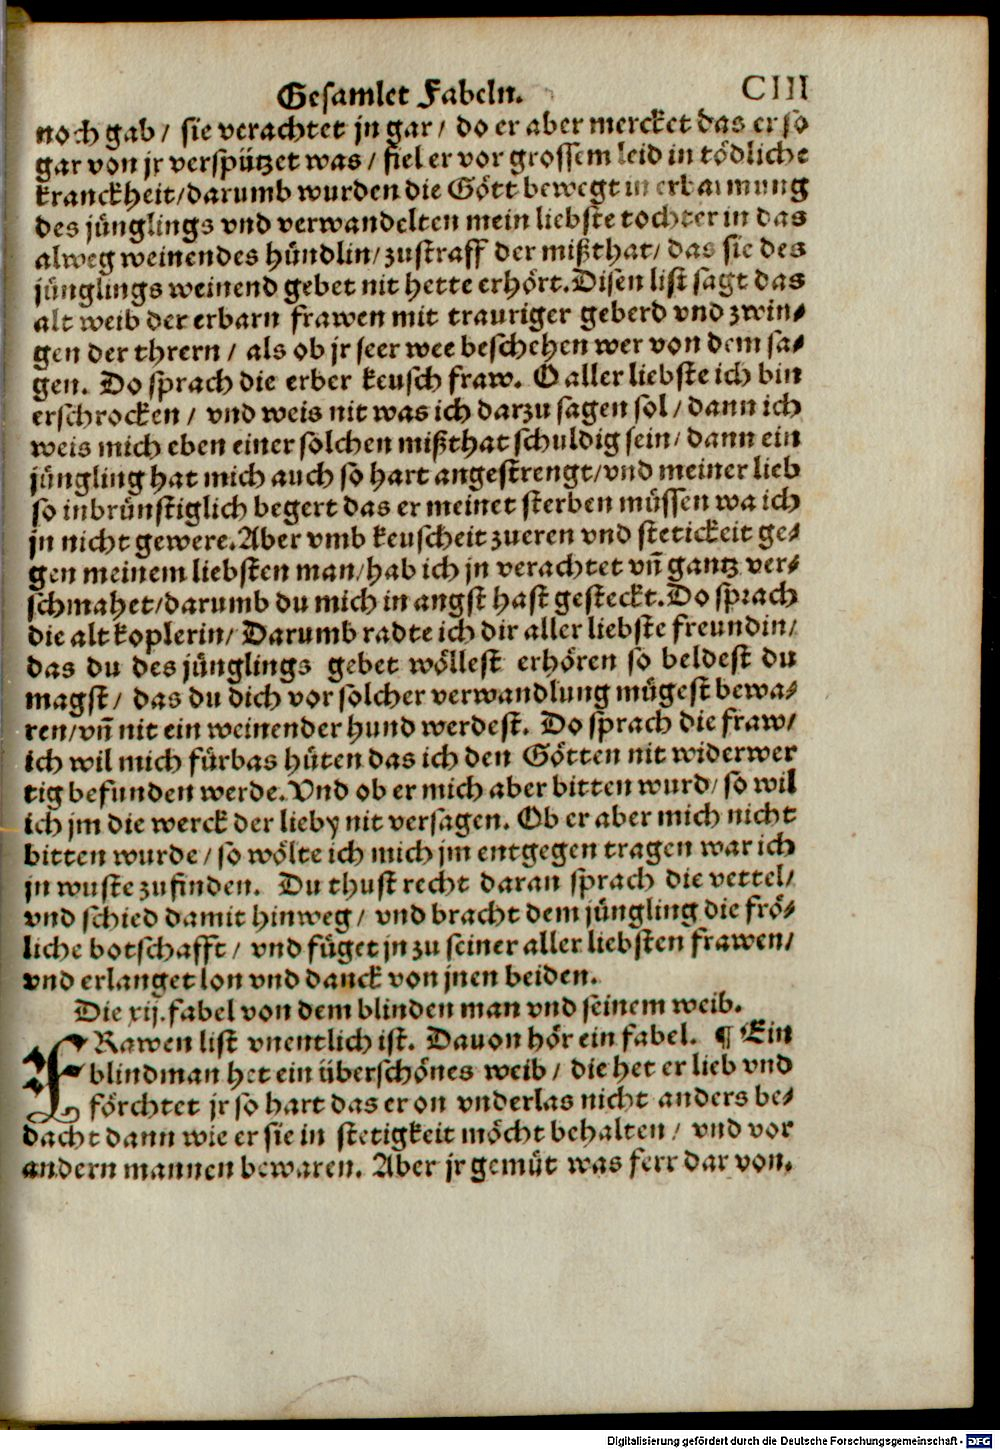 Gesamlet Fabeln. CIII
noch gab / sie verachtet jn gar / do er aber mercket das er so
gar von jr verspützet was / fiel er vor grossem leid in tödliche
kranckheit / darumb wurden die Gött bewegt in erbarmung
des jünglings vnd verwandelten mein liebste tochter in das
alweg weinendes hündlin / zustraff der mißthat / das sie des
jünglings weinend gebet nit hette erhört. Disen list sagt das
alt weib der erbarn frawen mit trauriger geberd vnd zwin-
gen der thrern / als ob jr seer wee beschehen wer von dem sa-
gen. Do sprach die erber keusch fraw. O aller liebste ich bin
erschrocken / vnd weis nit was ich darzu sagen sol / dann ich
weis mich eben einer solchen mißthat schuldig sein / dann ein
jüngling hat mich auch so hart angestrengt / vnd meiner lieb
so inbrünstiglich begert das er meinet sterben müssen wa ich
jn nicht gewere. Aber vmb keuscheit zueren vnd stetickeit ge-
gen meinem liebsten man / hab ich jn verachtet vn̄ gantz ver-
schmahet / darumb du mich in angst hast gesteckt. Do sprach
die alt koplerin / Darumb radte ich dir aller liebste freundin /
das du des jünglings gebet wöllest erhören so beldest du
magst / das du dich vor solcher verwandlung mügest bewa-
ren / vn̄ nit ein weinender hund werdest. Do sprach die fraw /
ich wil mich fürbas hüten das ich den Götten nit widerwer
tig befunden werde. Vnd ob er mich aber bitten wurd / so wil
ich jm die werck der lieby nit versagen. Ob er aber mich nicht
bitten wurde / so wölte ich mich jm entgegen tragen war ich
jn wuste zufinden. Du thust recht daran sprach die vettel /
vnd schied damit hinweg / vnd bracht dem jüngling die frö-
liche botschafft / vnd füget jn zu seiner aller liebsten frawen /
vnd erlanget lon vnd danck von jnen beiden.
Die xij. fabel von dem blinden man vnd seinem weib.
FRawen list vnentlich ist. Dauon hör ein fabel. ¶ Ein
blindman het ein überschönes weib / die het er lieb vnd
förchtet jr so hart das er on vnderlas nicht anders be-
dacht dann wie er sie in stetigkeit möcht behalten / vnd vor
andern mannen bewaren. Aber jr gemüt was ferr dar von.
Digitalisierung gefördert durch die Deutsche Forschungsgemeinschaft - DFG